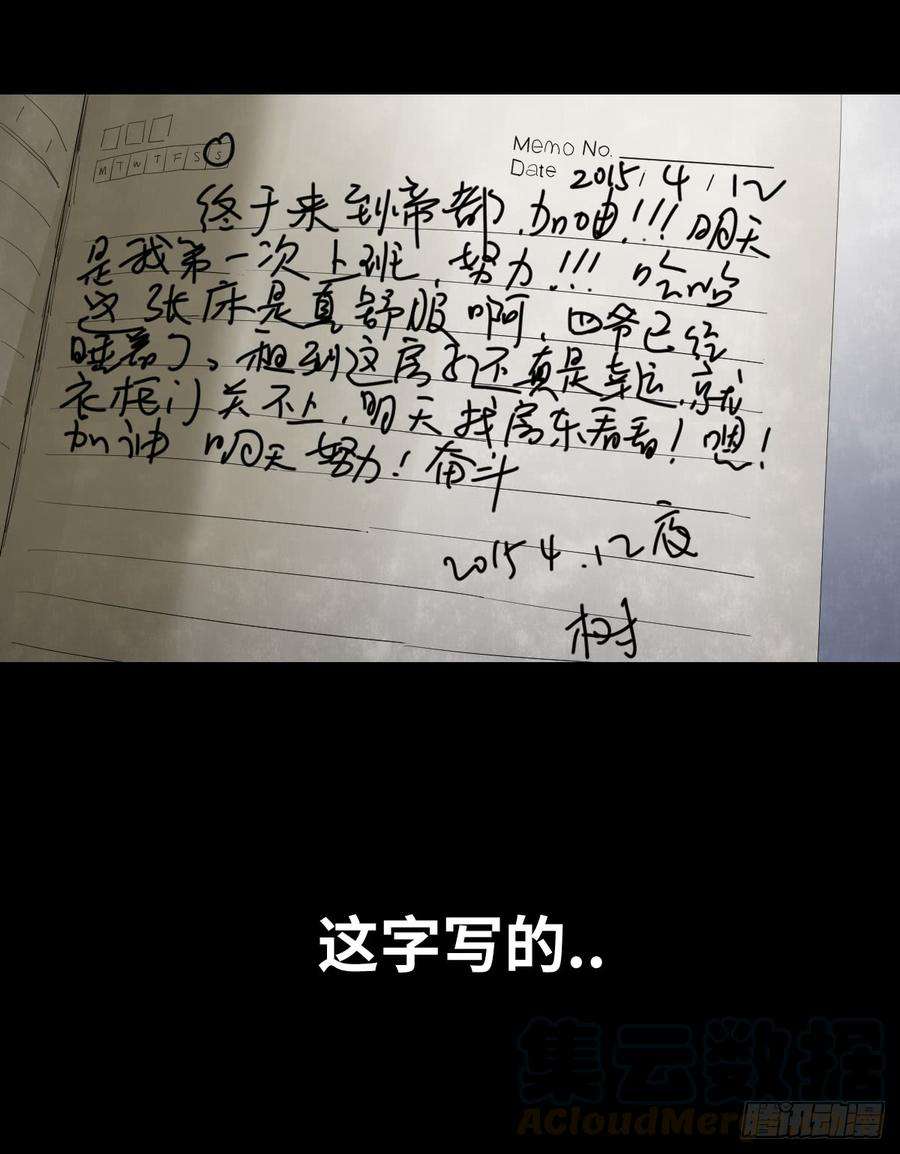 M T W T F S S
Memo No.
Date 2015/4/12
终于来到帝都,加油!!!明天
是我第一次上班,努力!!!哈哈
这张床是真舒服啊,四爷已经
睡着了、租到这房子还真是幸运,就是
衣柜门关不上,明天找房东看看!嗯!
加油 明天努力!奋斗
2015 4.12夜
树
这字写的..
集云数据
ACloudMer
腾讯动漫